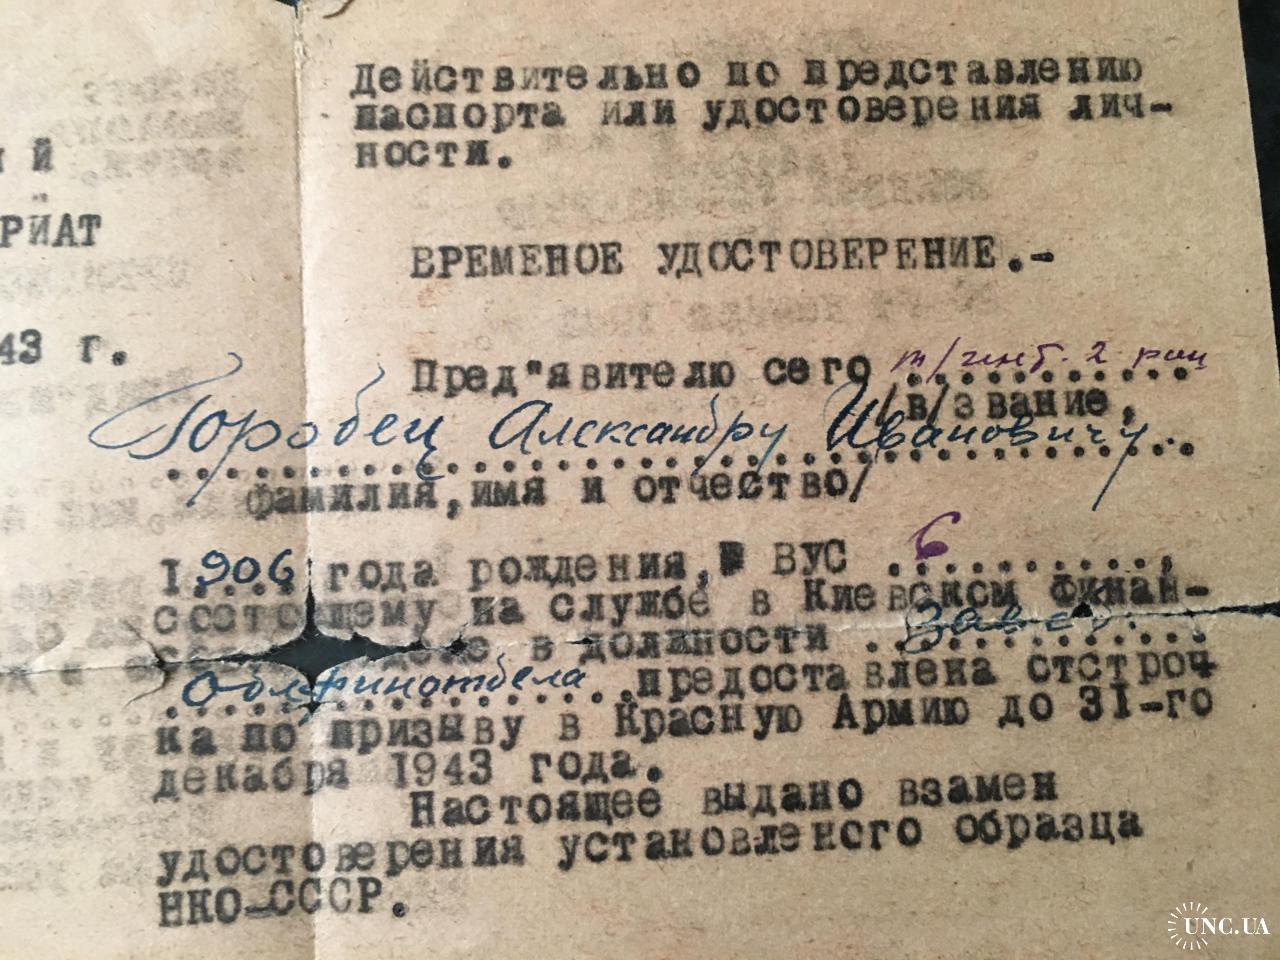 Действительно по представлению
паспорта или удостоверения лич-
ности.
й
РИАТ
ВРЕМЕНОЕ УДОСТОВЕРЕНИЕ.-
43 г.
Пред"явителю сего т/инт. 2 ран
/в/звание,
Горобец Александру Ивановичу
фамилия, имя и отчество/
1906 года рождения, ВУС 6,
состоящему на службе в Киевском Финан-
в должности Завед.
Облфинотдела предоставлена отстроч
ка по призыву в Красную Армию до 31-го
декабря 1943 года.
Настоящее выдано взамен
удостоверения установленого образца
НКО-СССР.
UNC.UA